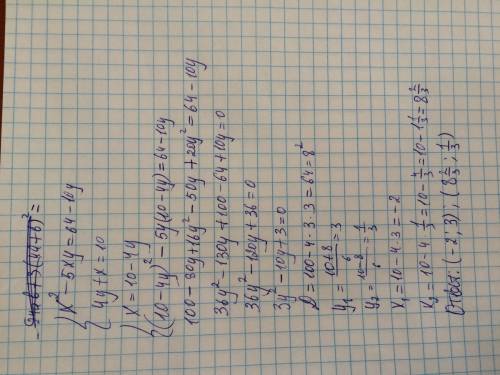 x² - 5xy = 64 - 10y
4y + x = 10
x = 10 - 4y
(10 - 4y)² - 5y(10 - 4y) = 64 - 10y
100 - 80y + 16y² - 50y + 20y² = 64 - 10y
36y² - 130y + 100 - 64 + 10y = 0
36y² - 120y + 36 = 0
3y² - 10y + 3 = 0
D = 100 - 4·3·3 = 64 = 8²
y₁ = (10+8)/6 = 3
y₂ = (10-8)/6 = 1/3
x₁ = 10 - 4·3 = -2
x₂ = 10 - 4·1/3 = 10 - 4/3 = 10 - 1 1/3 = 8 2/3
Ответ: (-2; 3); (8 2/3; 1/3)